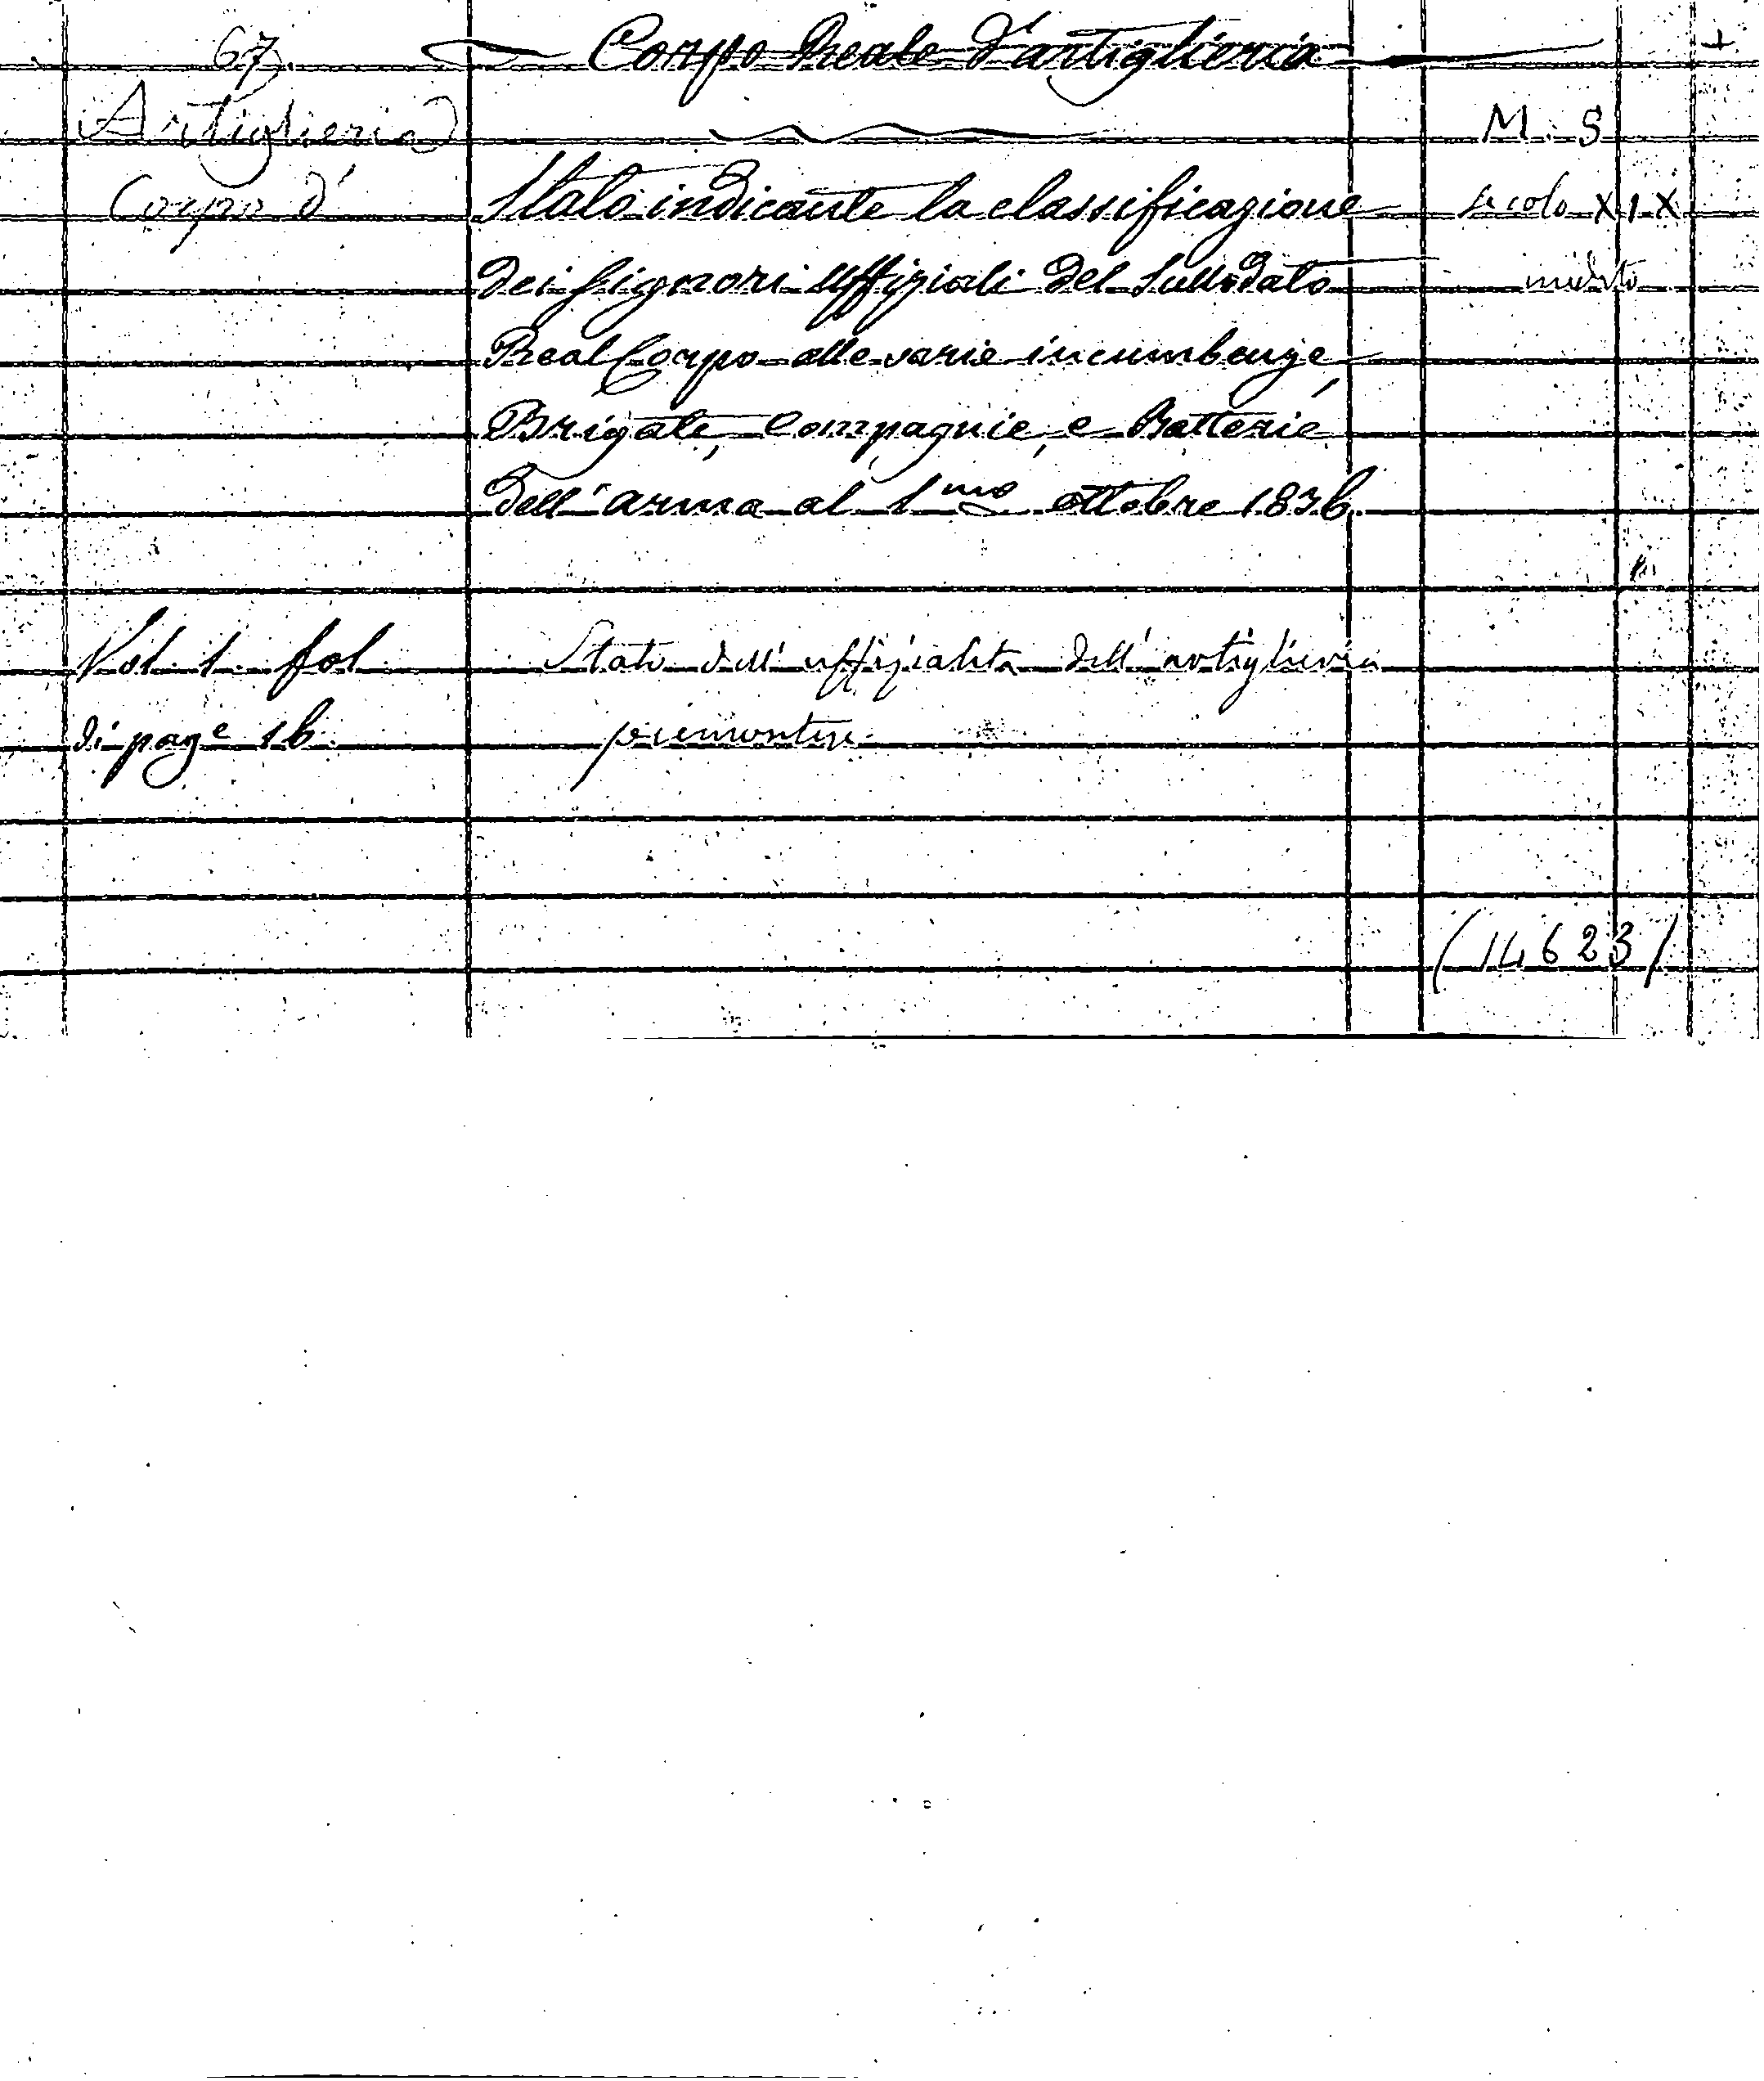 67.
Corpo Reale d'artiglieria
Artiglieria
M. S
Corpo d'
Stato indicante la classificazione
secolo XIX
dei Signori Uffiziali del Sullodato
inedito
Real Corpo alle varie incumbenze
Brigate, Compagnie, e Batterie
dell'arma al 1mo ottobre 1836.
Vol. 1. fol
Stato dell'uffizialità dell'artiglieria
di page 16.
piemontese.
(14623)